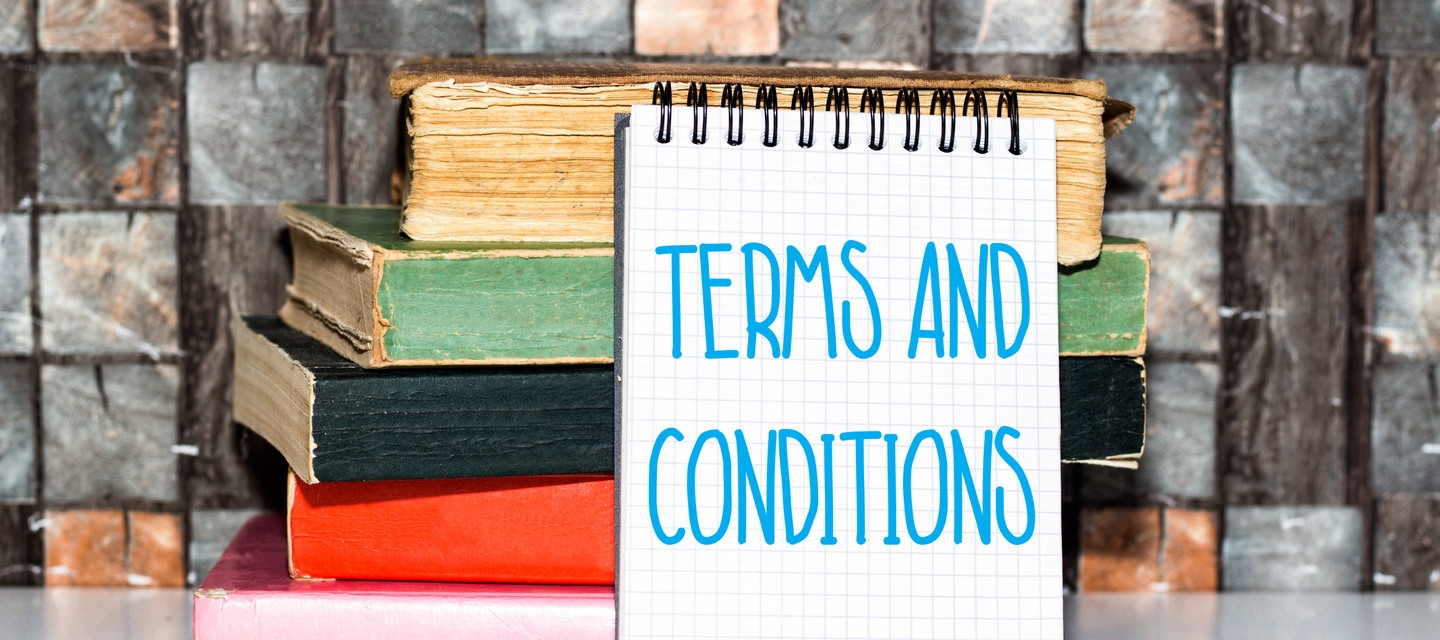 TERMS AND
CONDITIONS